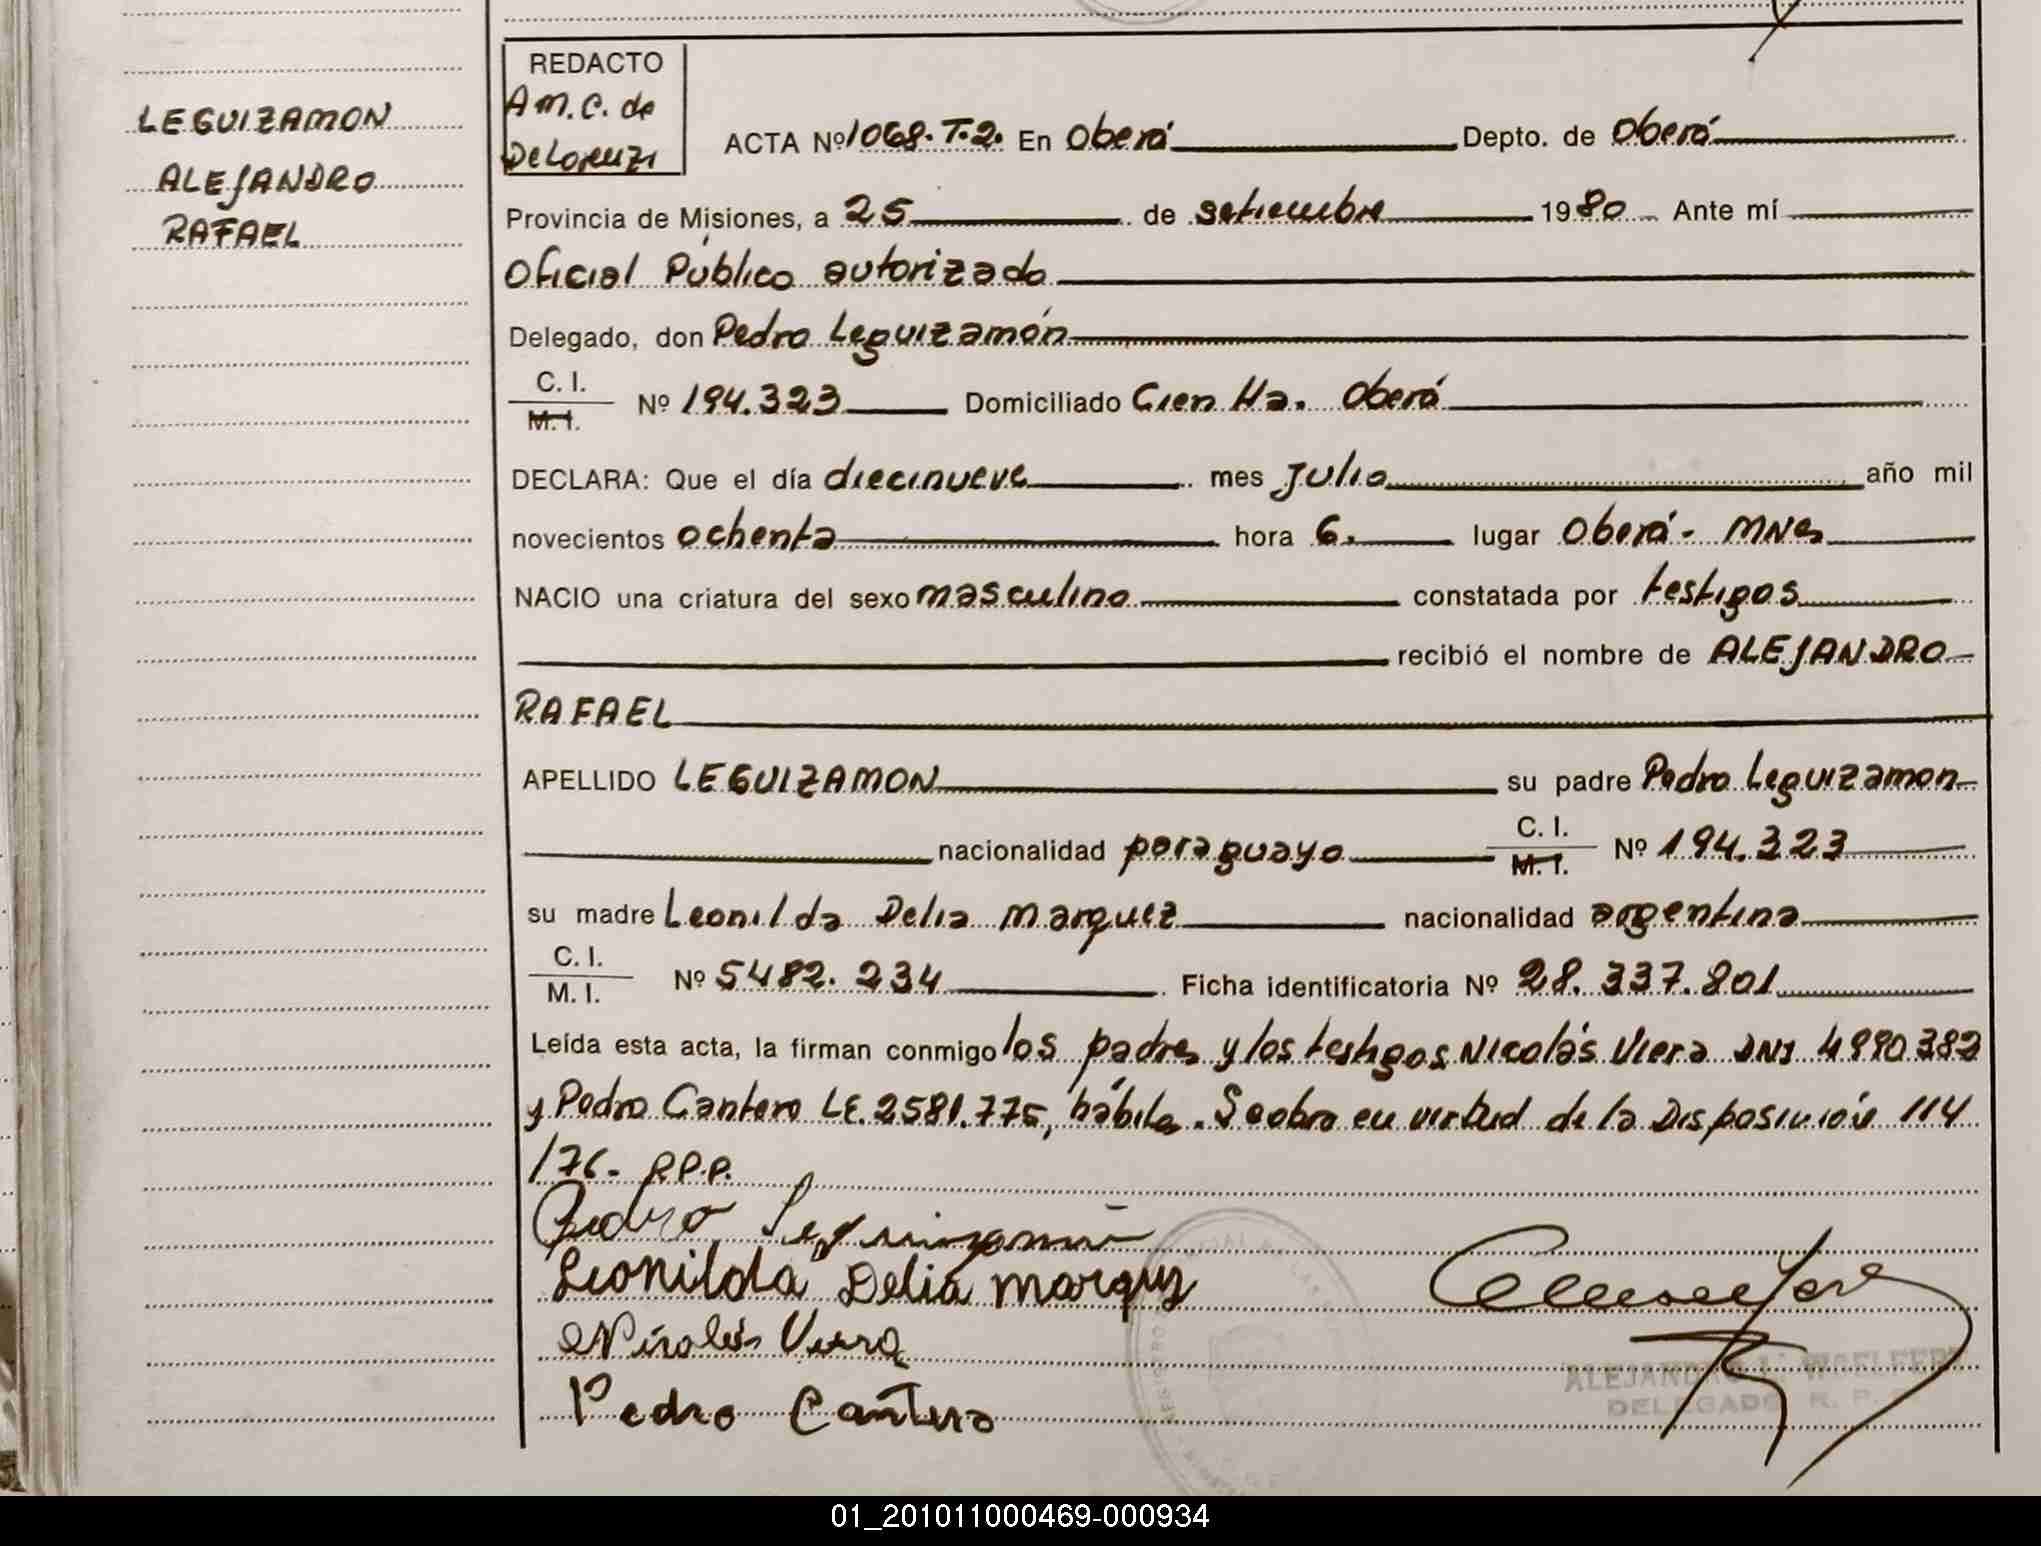 LEGUIZAMON
ALEJANDRO
RAFAEL
REDACTO
A M. C. de
De Lorenzi
ACTA Nº 1068. T. 2. En Oberá Depto. de Oberá
Provincia de Misiones, a 25 de setiembre 1980 Ante mí
Oficial Público autorizado
Delegado, don Pedro Leguizamón
C. I.
M. I.
Nº 194.323 Domiciliado Cien Ha. Oberá
DECLARA: Que el día diecinueve mes Julio año mil
novecientos ochenta hora 6. lugar Oberá - MNes
NACIO una criatura del sexo masculino constatada por testigos
recibió el nombre de ALEJANDRO
RAFAEL
APELLIDO LEGUIZAMON su padre Pedro Leguizamon
nacionalidad paraguayo C. I. M. I. Nº 194.323
su madre Leonilda Delia Marquez nacionalidad argentina
C. I.
M. I.
Nº 5482.234 Ficha identificatoria Nº 28.337.801
Leída esta acta, la firman conmigo los padres y los testigos Nicolás Viera DNI 4990382
y Pedro Cantero LE. 2581.775, hábiles. S cobro en virtud de la Disposición 114
/76- R.P.P.
Pedro Leguizamón
Leonilda Delia Marquez
Nicolás Viera
Pedro Cantero
ALEJANDRO L. WOELFERT
DELEGADO R. P.
01_201011000469-000934